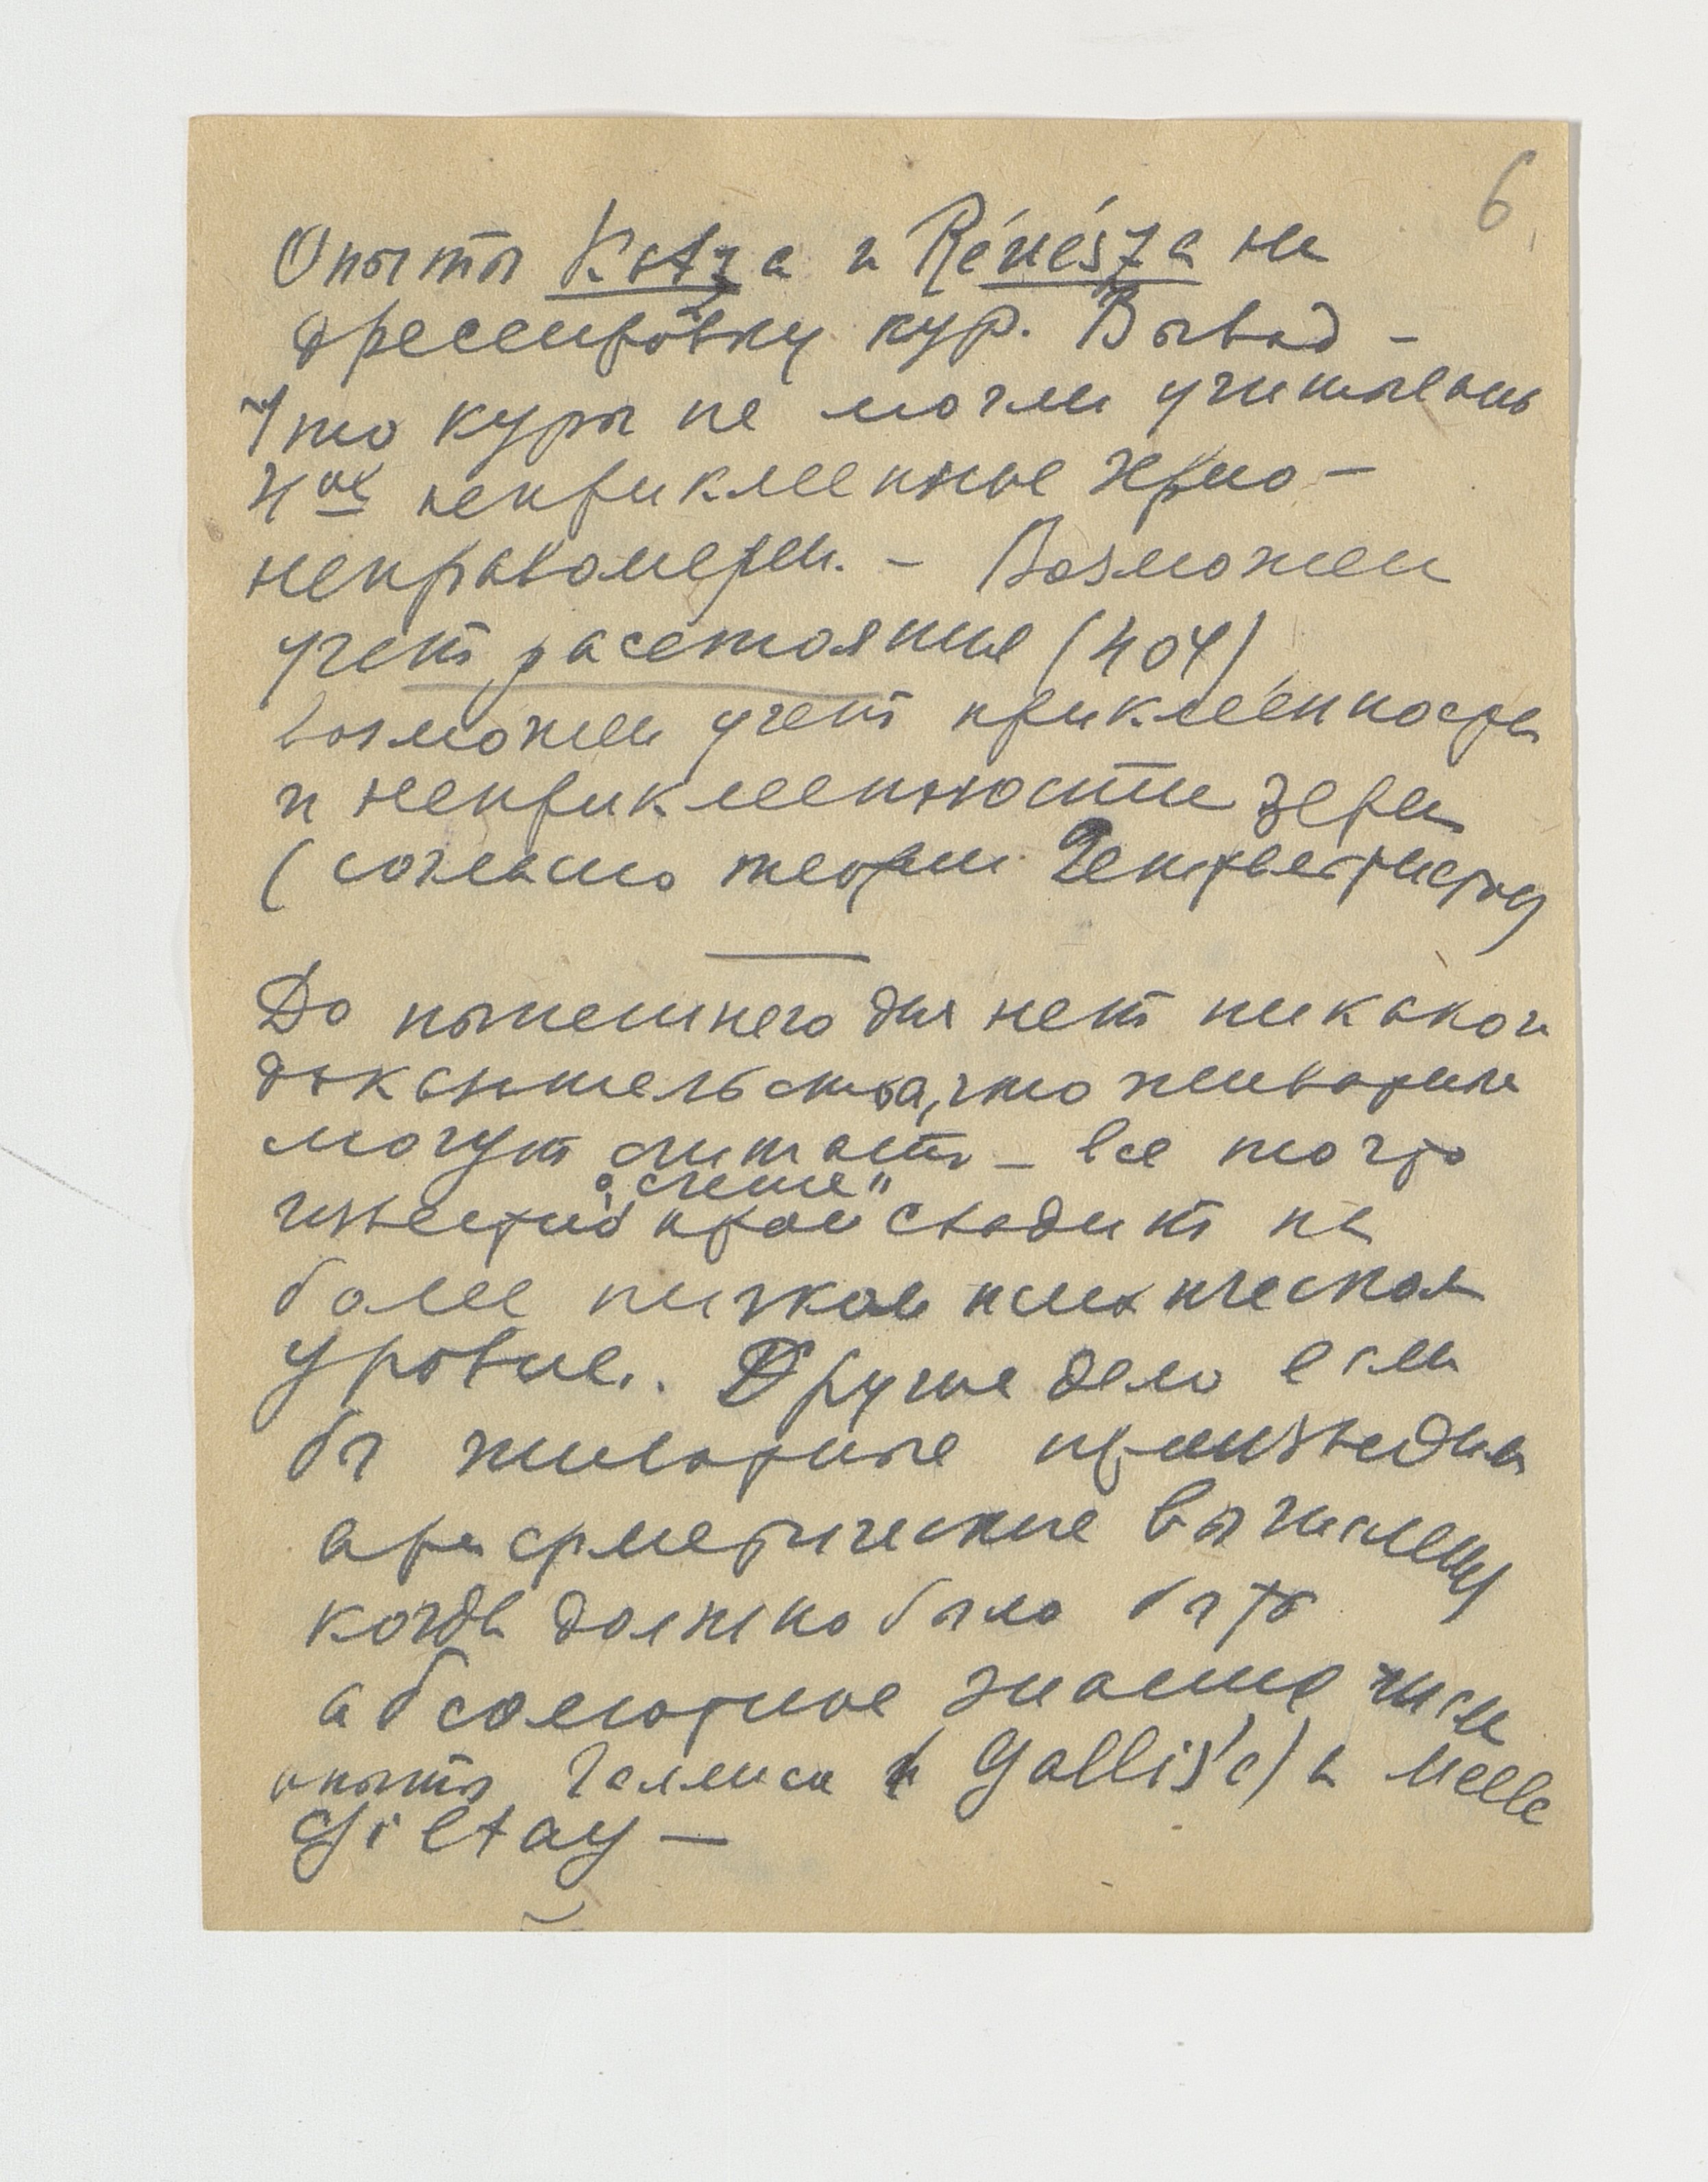 6
Опыты Katza и Révész'a на
дрессировку кур. Вывод –
что куры не могли учитывать
4ое неприклеенное зерно –
неправомерен. – Возможен
учет расстояния (404)
возможен учет приклеенности
и неприклеенности зерен
(согласно теории
До нынешнего дня нет никаких
доказательства, что животные
могут считать – все то что
о „счете"
сводит на
более низкой психической
уровне. Другое дело если
бы животные производили
арифметические вычислен
когда должно было быть
абсолютное знание чисел
опыты Галлиса (Gallis'a) и Melle
Giltay –